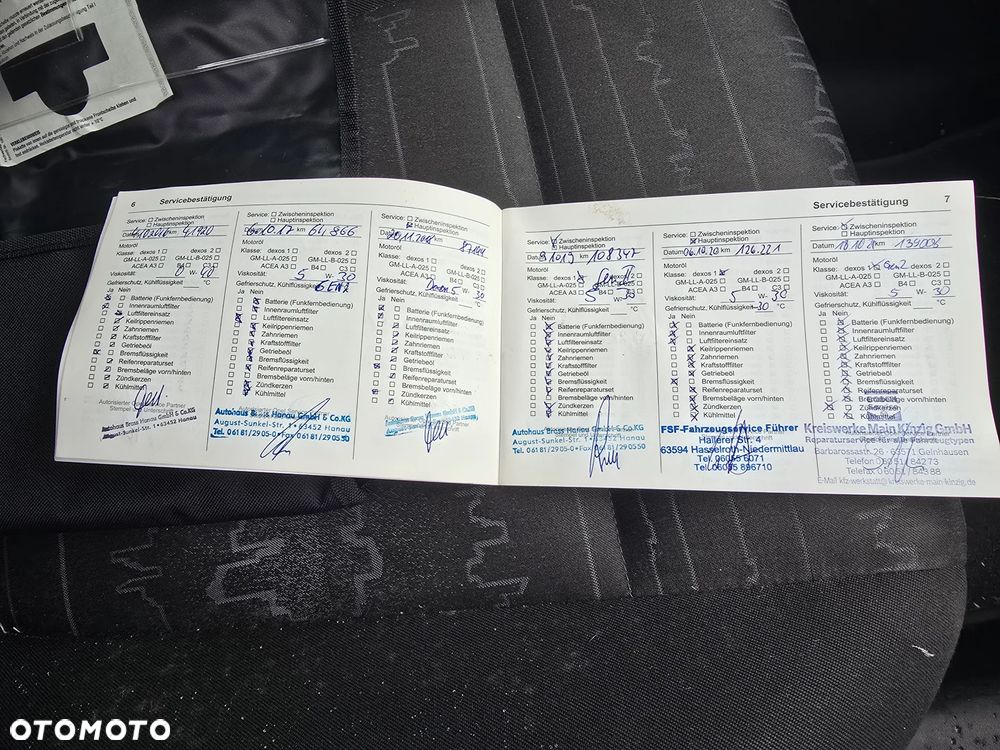 VERKLEBEHINWEIS
6 Servicebestätigung
Service: Zwischeninspektion
Hauptinspektion
km 41920
Motoröl
Klasse: dexos 1 dexos 2
GM-LL-A-025 GM-LL-B-025
ACEA A3 B4 C3
Viskosität: W-
Gefrierschutz, Kühlflüssigkeit
Ja Nein
Batterie (Funkfernbedienung)
Innenraumluftfilter
Luftfiltereinsatz
Keilrippenriemen
Zahnriemen
Kraftstofffilter
Getriebeöl
Bremsflüssigkeit
Reifenreparaturset
Bremsbeläge vorn/hinten
Zündkerzen
Kühlmittel
Autohaus Brass Hanau GmbH & Co.KG
August-Sunkel-Str. 1 • 63452 Hanau
Service: Zwischeninspektion
Hauptinspektion
10.17 km 64 866
Motoröl
Klasse: dexos 1 dexos 2
GM-LL-A-025 GM-LL-B-025
ACEA A3 B4 C3
Viskosität: 5 W- 30
Gefrierschutz, Kühlflüssigkeit
Ja Nein
Batterie (Funkfernbedienung)
Innenraumluftfilter
Luftfiltereinsatz
Keilrippenriemen
Zahnriemen
Kraftstofffilter
Getriebeöl
Bremsflüssigkeit
Reifenreparaturset
Bremsbeläge vorn/hinten
Zündkerzen
Kühlmittel
Autohaus Brass Hanau GmbH & Co.KG
August-Sunkel-Str. 1 • 63452 Hanau
Tel. 06181/2905-0 • Fax 06181/290550
Service: Zwischeninspektion
Hauptinspektion
Motoröl
Klasse: dexos 1 dexos 2
GM-LL-A-025 GM-LL-B-025
ACEA A3 B4 C3
Viskosität: 5 W- 30
Gefrierschutz, Kühlflüssigkeit °C
Ja Nein
Batterie (Funkfernbedienung)
Innenraumluftfilter
Luftfiltereinsatz
Keilrippenriemen
Zahnriemen
Kraftstofffilter
Getriebeöl
Bremsflüssigkeit
Reifenreparaturset
Bremsbeläge vorn/hinten
Zündkerzen
Kühlmittel
Servicebestätigung 7
Service: Zwischeninspektion
Hauptinspektion
Datum km 108347
Motoröl
Klasse: dexos 1 dexos 2
GM-LL-A-025 GM-LL-B-025
ACEA A3 B4 C3
Viskosität: 5 W- 30
Gefrierschutz, Kühlflüssigkeit °C
Ja Nein
Batterie (Funkfernbedienung)
Innenraumluftfilter
Luftfiltereinsatz
Keilrippenriemen
Zahnriemen
Kraftstofffilter
Getriebeöl
Bremsflüssigkeit
Reifenreparaturset
Bremsbeläge vorn/hinten
Zündkerzen
Kühlmittel
Autohaus Brass Hanau GmbH & Co.KG
August-Sunkel-Str. 1 • 63452 Hanau
Tel. 06181/2905-0 • Fax 06181/290550
Service: Zwischeninspektion
Hauptinspektion
Datum 06.10.20 km 126.221
Motoröl
Klasse: dexos 1 dexos 2
GM-LL-A-025 GM-LL-B-025
ACEA A3 B4 C3
Viskosität: 5 W- 30
Gefrierschutz, Kühlflüssigkeit -30 °C
Ja Nein
Batterie (Funkfernbedienung)
Innenraumluftfilter
Luftfiltereinsatz
Keilrippenriemen
Zahnriemen
Kraftstofffilter
Getriebeöl
Bremsflüssigkeit
Reifenreparaturset
Bremsbeläge vorn/hinten
Zündkerzen
Kühlmittel
FSF-Fahrzeugservice Führer
Hallerer Str. 4
63594 Hasselroth-Niedermittlau
Tel. 06055 6071
Tel. 06055 896710
Service: Zwischeninspektion
Hauptinspektion
Datum km
Motoröl
Klasse: dexos 1 dexos 2
GM-LL-A-025 GM-LL-B-025
ACEA A3 B4 C3
Viskosität: 5 W- 30
Gefrierschutz, Kühlflüssigkeit °C
Ja Nein
Batterie (Funkfernbedienung)
Innenraumluftfilter
Luftfiltereinsatz
Keilrippenriemen
Zahnriemen
Kraftstofffilter
Getriebeöl
Bremsflüssigkeit
Reifenreparaturset
Bremsbeläge vorn/hinten
Zündkerzen
Kühlmittel
Kreiswerke Main Kinzig GmbH
Reparaturservice für alle Fahrzeugtypen
Barbarossastr. 26 - 63571 Gelnhausen
Telefon 06051/84273
Telefax 06051/84388
E-Mail kfz-werkstatt@kreiswerke-main-kinzig.de
OTOMOTO